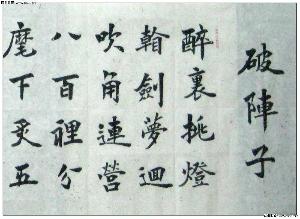 破陣子
醉裏挑燈
翰劍夢迴
吹角連營
八百裡分
麾下炙五